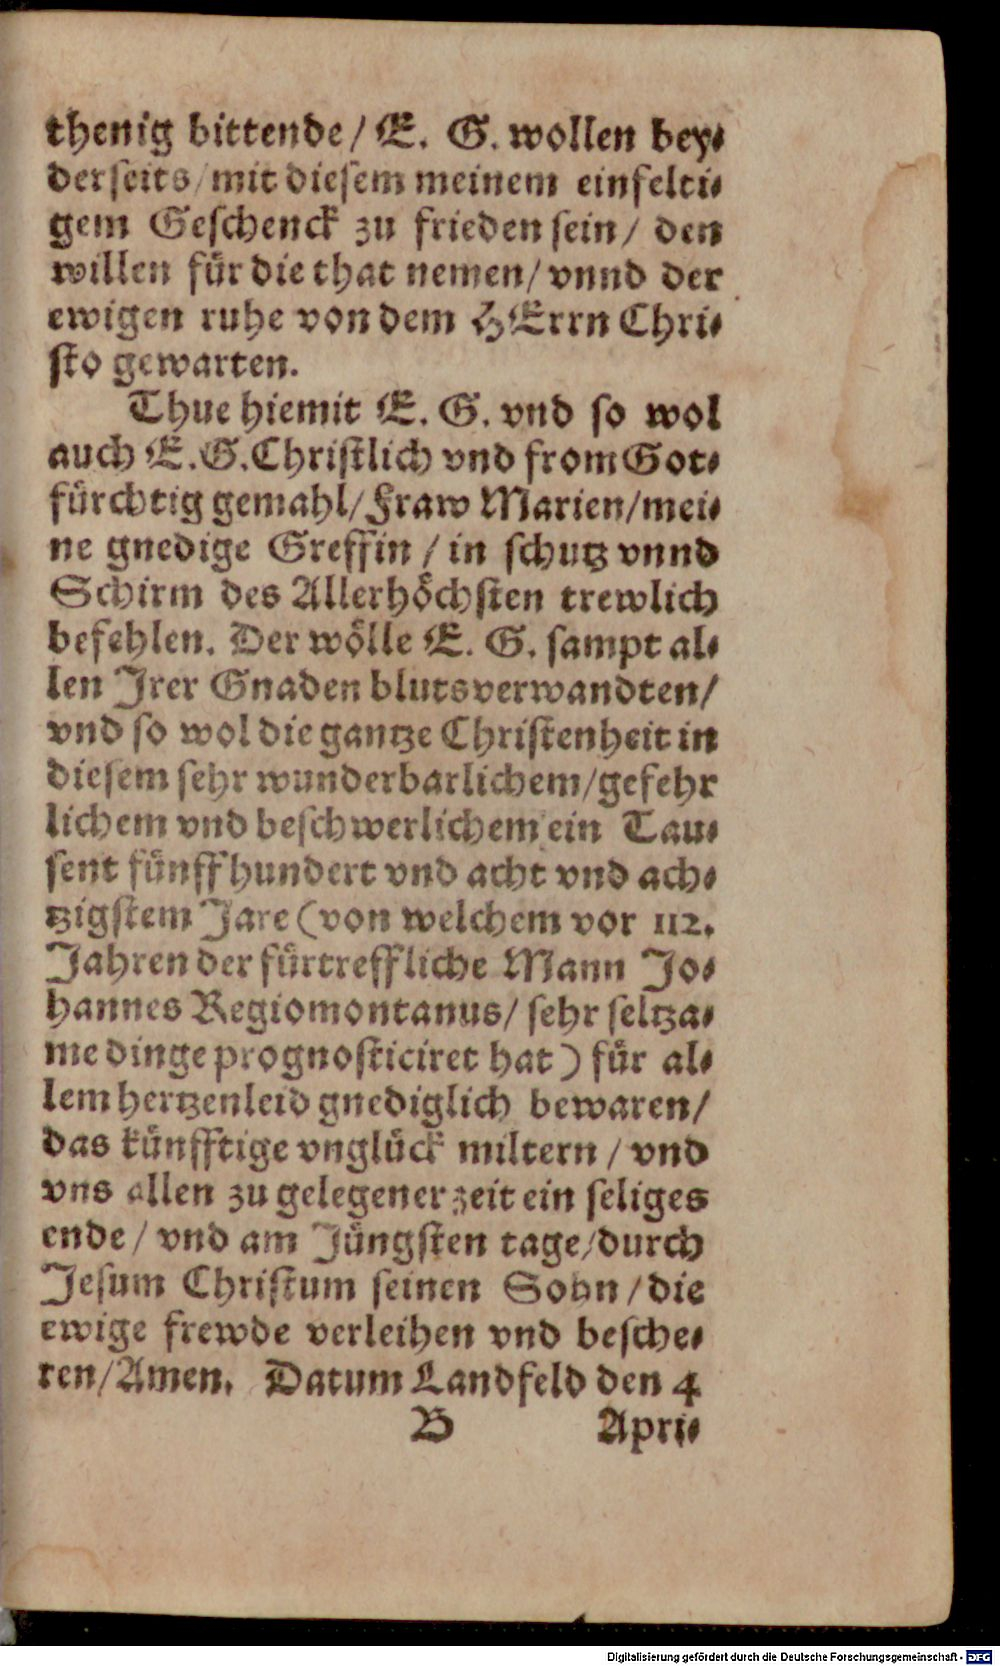 thenig bittende/ E. G. wollen bey⸗
derseits/mit diesem meinem einfelti⸗
gem Geschenck zu frieden sein/ den
willen für die that nemen/ vnnd der
ewigen ruhe von dem HErrn Chri⸗
sto gewarten.
Thue hiemit E. G. vnd so wol
auch E.G.Christlich vnd from Got⸗
fürchtig gemahl/Fraw Marien/mei⸗
ne gnedige Greffin / in schutz vnnd
Schirm des Allerhöchsten trewlich
befehlen. Der wölle E. G. sampt al⸗
len Jrer Gnaden blutsverwandten/
vnd so wol die gantze Christenheit in
diesem sehr wunderbarlichem/gefehr
lichem vnd beschwerlichem ein Tau⸗
sent fünff hundert vnd acht vnd ach⸗
tzigstem Jare (von welchem vor 112.
Jahren der fürtreffliche Mann Jo⸗
hannes Regiomontanus/ sehr seltza⸗
me dinge prognosticiret hat) für al⸗
lem hertzenleid gnediglich bewaren/
das künfftige vnglück miltern / vnd
vns allen zu gelegener zeit ein seliges
ende / vnd am Jüngsten tage/durch
Jesum Christum seinen Sohn / die
ewige frewde verleihen vnd besche⸗
ren/Amen. Datum Landfeld den 4
B Apri⸗
Digitalisierung gefördert durch die Deutsche Forschungsgemeinschaft - DFG